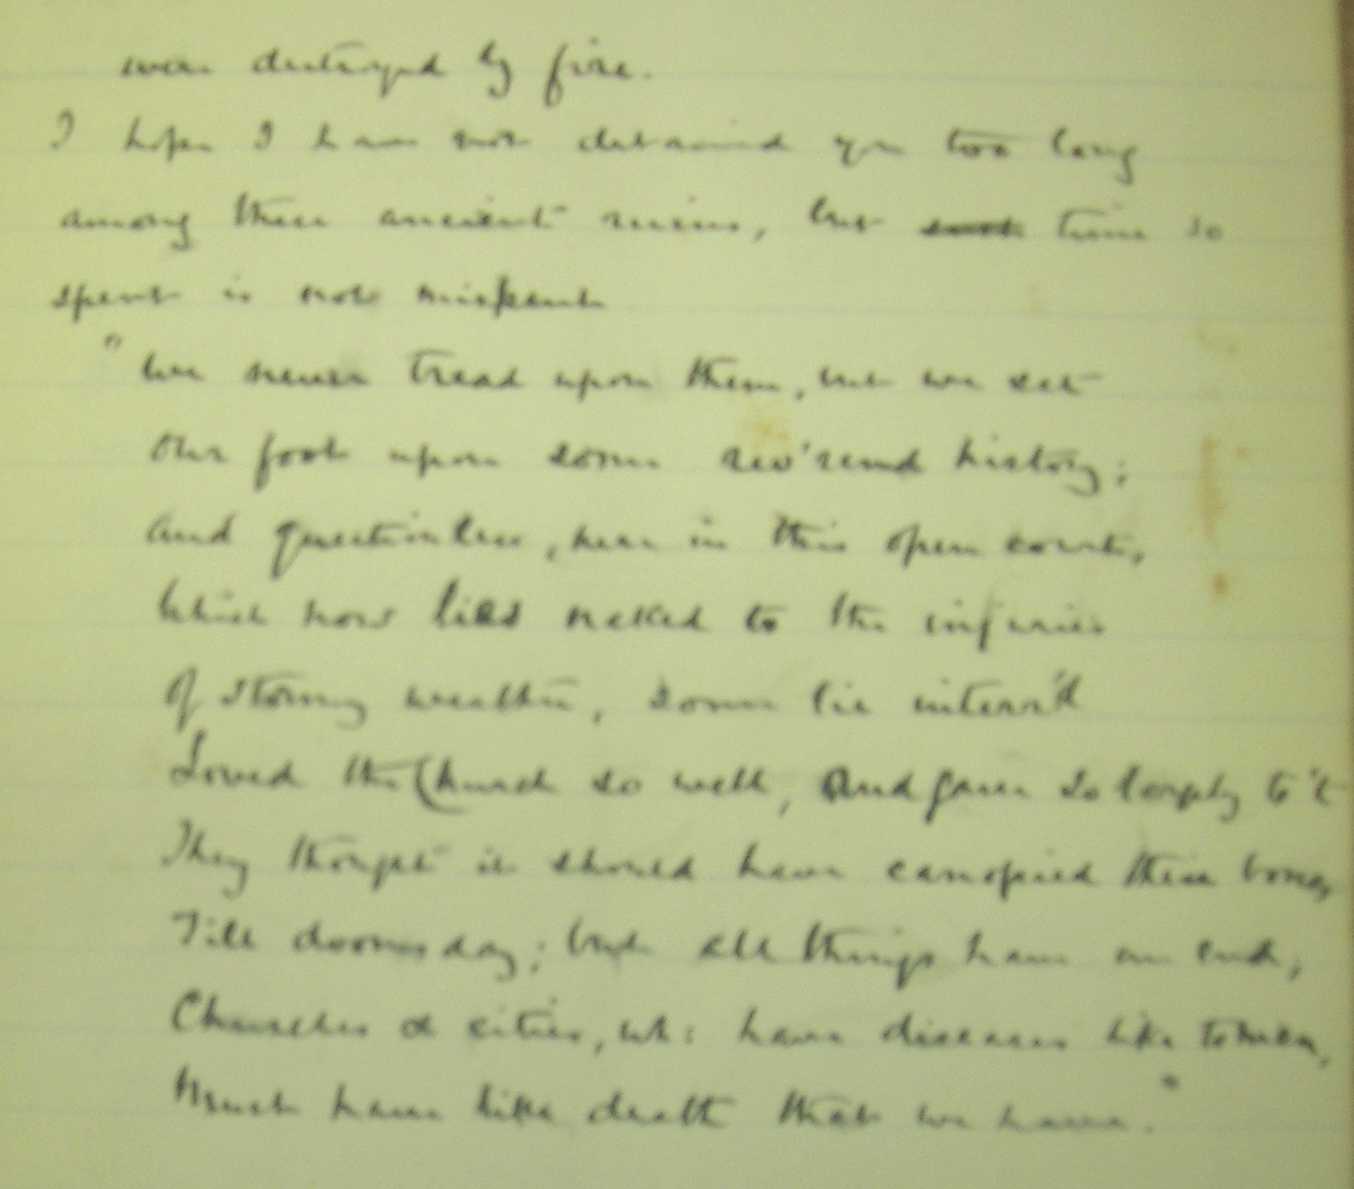 was destroyed by fire.
I hope I have not detained you too long
among these ancient ruins, but such time so
spent is not mispent
"We never tread upon them, but we set
Our foot upon some rev'rend history;
And questionless, here in this open court,
Which now lies naked to the injuries
Of stormy weather, some lie interr'd
Loved the Church so well, and gave so largely to 't
They thought it should have canopied their bones
Till doomsday; but all things have an end,
Churches & cities, wh: have diseases like to men,
Must have like death that we have."